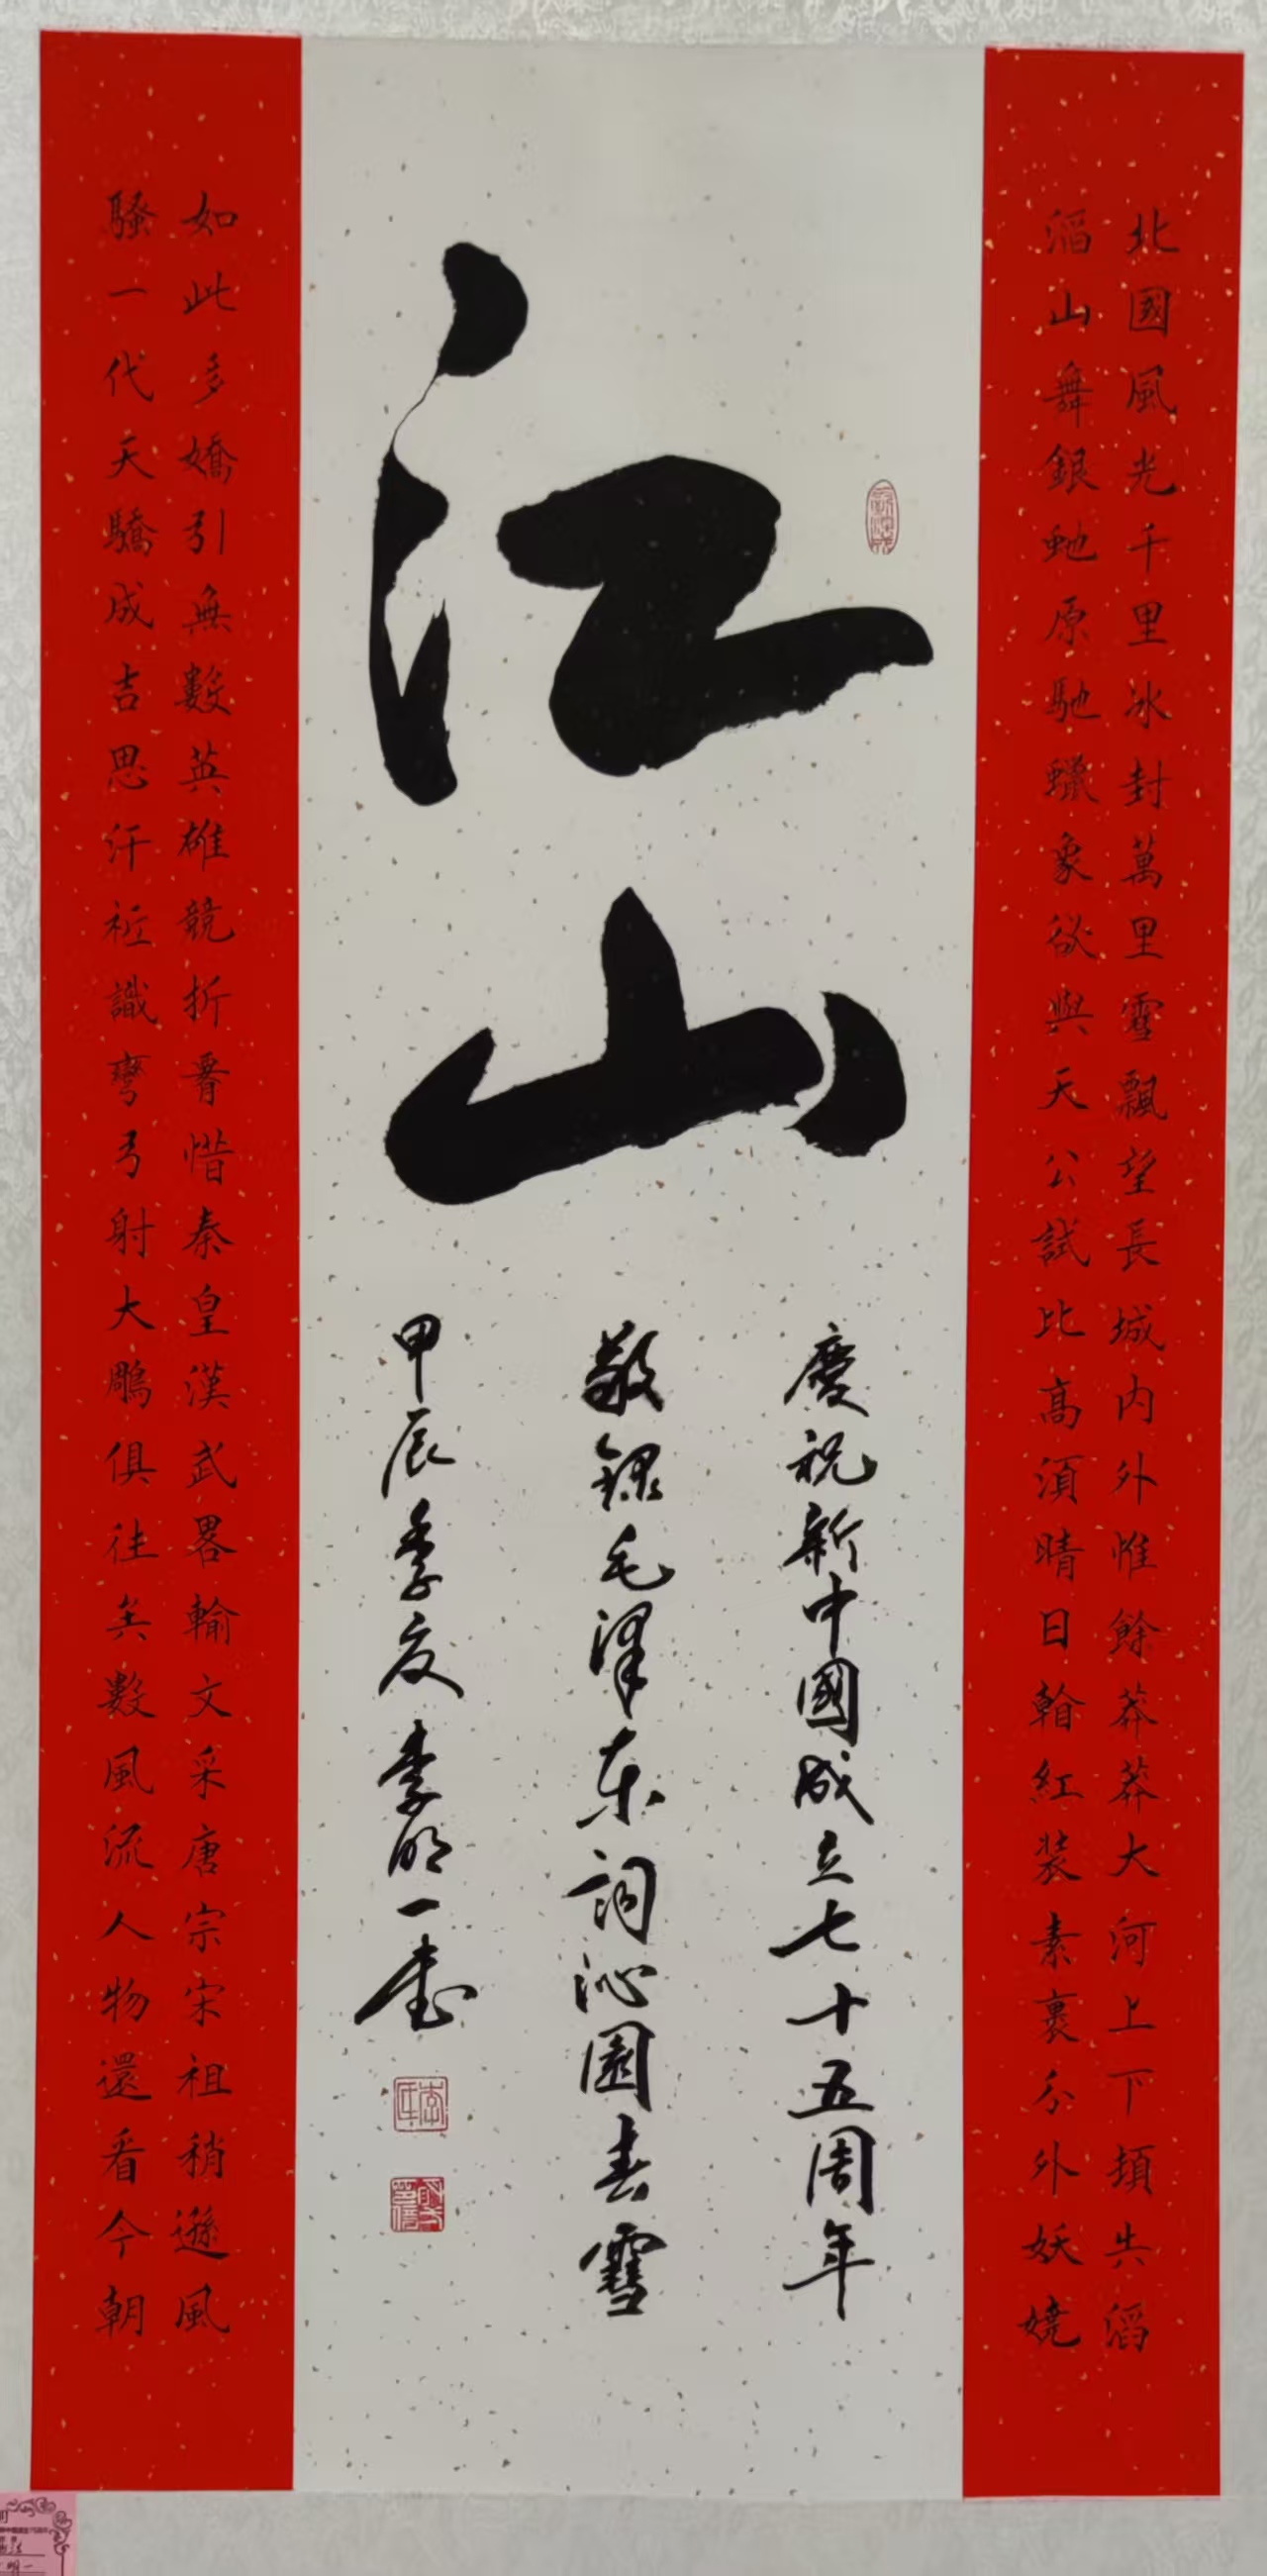 北國風光千里冰封萬里雪飄望長城内外惟餘莽莽大河上下頓失滔
滔山舞銀虵原馳蠟象欲與天公試比高湏晴日看紅装素裹分外妖嬈
江山
慶祝新中國成立七十五周年
敬録毛澤东詞沁園春雪
甲辰季夏李明一書
如此多嬌引無數英雄競折腰惜秦皇漢武畧輸文采唐宗宋祖稍遜風
騷一代天驕成吉思汗祗識彎弓射大鵰俱往矣數風流人物還看今朝